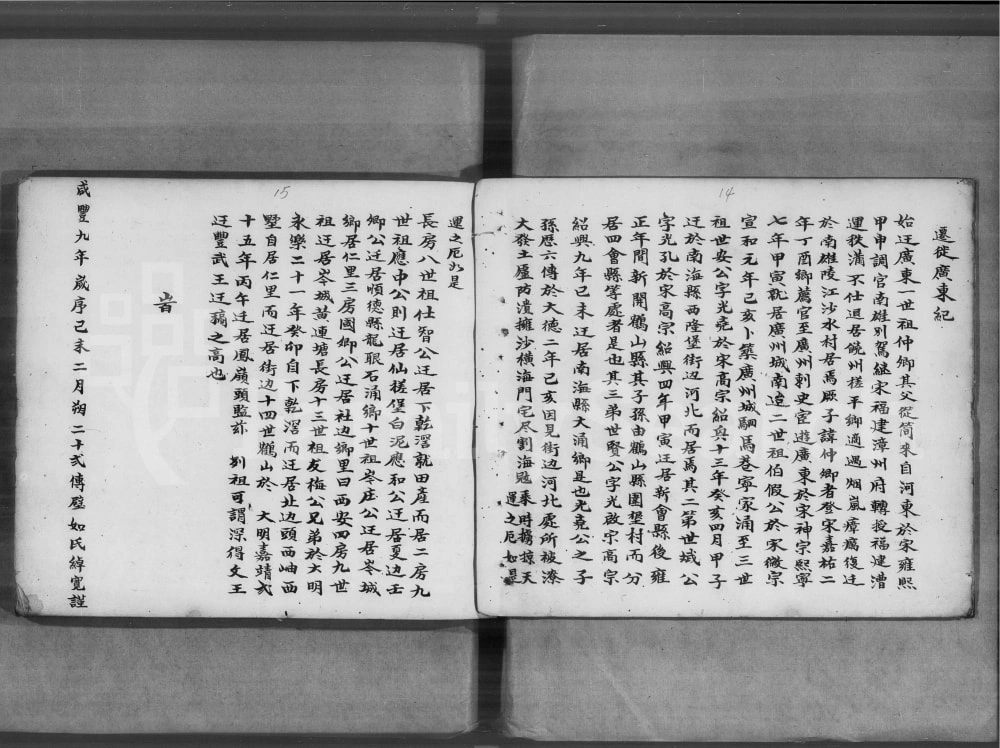 14
遷徙廣東紀
始迁廣東一世祖仲卿其父從简来自河東於宋雍熙
甲申調官南雄别駕継宋福建漳州府轉授福建漕
運秩满不仕退居饒州槎平鄉適遇烟嵐瘴癘復迁
於南雄陵江沙水村居焉厥子諱仲卿者登宋嘉祐二
年丁酉鄉薦官至廣州刺史宦遊廣東於宋神宗熙寧
七年甲寅就居廣州城南遠二世祖伯假公於宋徽宗
宣和元年己亥卜築廣州城駟馬巷寧家涌至三世
祖世安公字光堯於宋高宗紹興十三年癸亥四月甲子
迁於南海縣西隆堡街边河北而居焉其二第世域公
字光孔於宋高宗紹興四年甲寅迁居新會縣後雍
正年間新開鶴山縣其子孫由鶴山縣圍墾村而分
居四會縣等處者是也其三弟世賢公字光啟宗高宗
紹興九年己未迁居南海縣大涌鄉是也光堯公之子
孫歷六傳於大德二年己亥因見街边河北處所被潦
大發土壚防潰擁沙横海門宅尽割海𠒋乘時擄掠天
運之厄如是
15
運之厄如是
長房八世祖仕智公迁居下乾滘就田產而居二房九
世祖應中公則迁居仙槎堡白泥應和公迁居夏边壬
鄉公迁居順德縣龍眼石涌鄉十世祖岑庄公迁居岑城
鄉居仁里三房國鄉公迁居社边鄉里曰西安四房九世
祖迁居岑城黄連塘長房十三世祖友梅公兄弟於大明
永樂二十一年癸卯自下乾滘而迁居北边頭西岫西
墅自居仁里而迁居街边十四世鶴山於 大明嘉靖弍
十五年丙午迁居鳳嶺頭監玆 列祖可謂深得文王
迁豐武王迁鎬之高也
旹
咸豐九年歲序己未二月朔二十弍傳殿如氏綽寬謹